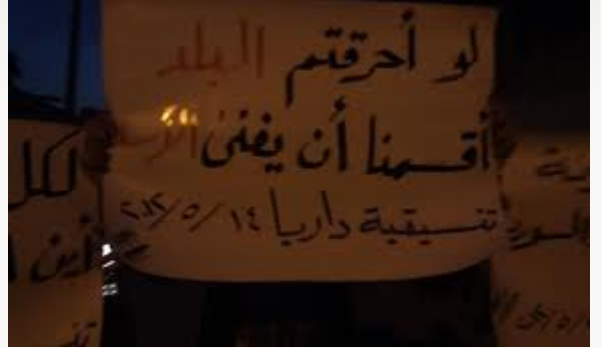 لو أحرقتم البلد
أقسمنا أن يفنى "الأسد"
تنسيقية داريا ١٤/٥/٢٠١٢
لكل
أين